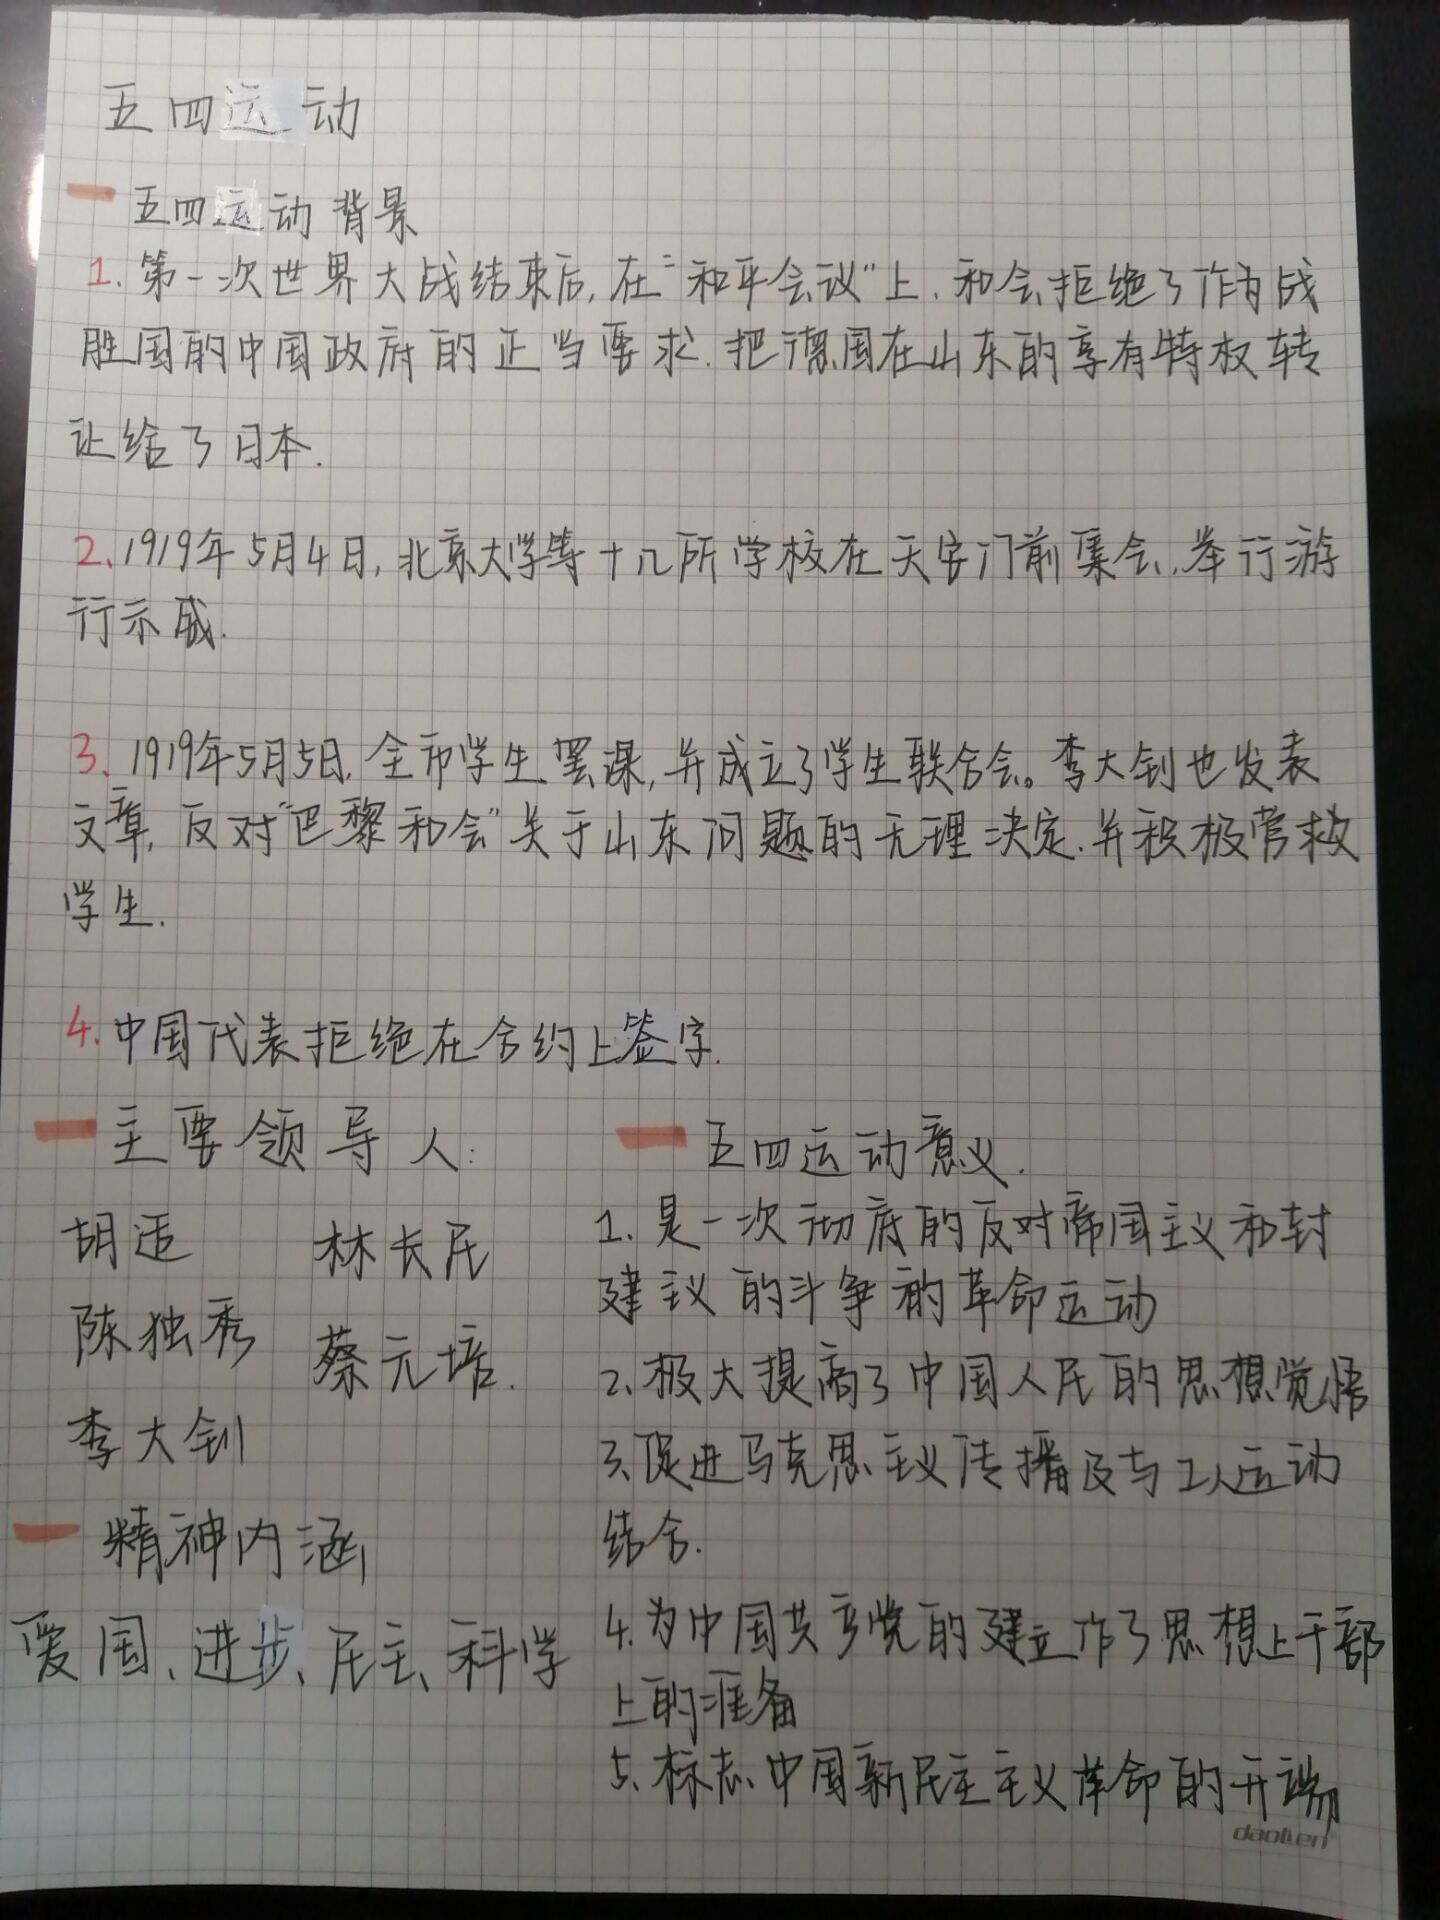 五四运动
一 五四运动背景
1. 第一次世界大战结束后,在"和平会议"上.和会拒绝了作为战
胜国的中国政府的正当要求.把德国在山东的享有特权转
让给了日本.
2、1919年5月4日,北京大学等十几所学校在天安门前集会,举行游
行示威.
3、1919年5月5日,全市学生罢课,并成立了学生联合会。李大钊也发表
文章,反对"巴黎和会"关于山东问题的无理决定.并积极营救
学生.
4.中国代表拒绝在合约上签字.
一 主要领导人:
胡适 林长民
陈独秀 蔡元培.
李大钊
一 精神内涵
爱国、进步、民主、科学
一 五四运动意义.
1.是一次彻底的反对帝国主义和封
建主义的斗争的革命运动
2、极大提高了中国人民的思想觉悟
3、促进马克思主义传播及与工人运动
结合.
4.为中国共产党的建立作了思想上干部
上的准备
5、标志、中国新民主主义革命的开端
daolien